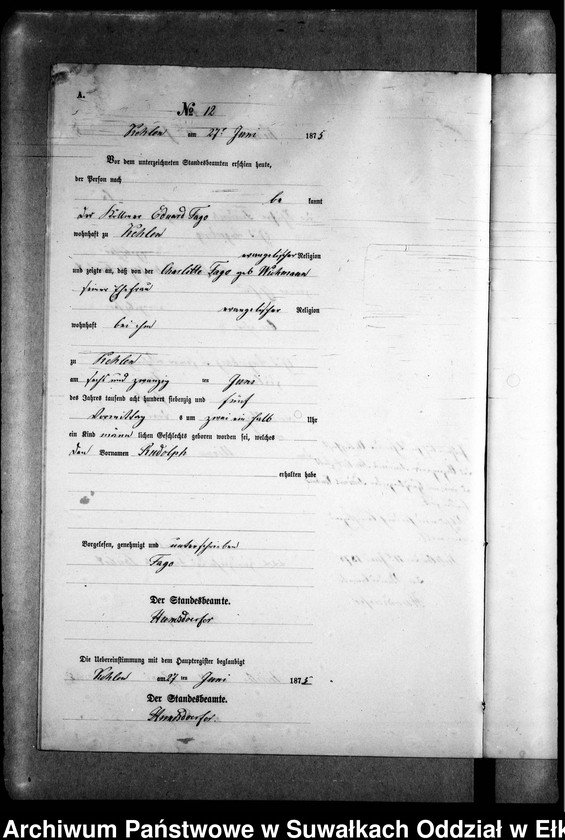 A.
№ 12
Kehlen am 27t Juni 1875
Vor dem unterzeichneten Standesbeamten erschien heute,
der Person nach
be kannt
der Eduard Fago
wohnhaft zu Kehlen
evangelischer Religion
und zeigte an, daß von der Charlotte Fago geb Wichmann
seiner Ehefrau
evangelischer Religion
wohnhaft bei ihm
zu Kehlen
am sechs und zwanzig ten Juni
des Jahres tausend acht hundert siebenzig und fünf
Vormittag s um zwei ein halb Uhr
ein Kind männ lichen Geschlechts geboren worden sei, welches
den Vornamen Rudolph
erhalten habe
Vorgelesen, genehmigt und unterschrieben
Fago
Der Standesbeamte.
Die Uebereinstimmung mit dem Hauptregister beglaubigt
Kehlen am 27 ten Juni 1875
Der Standesbeamte.
Archiwum Państwowe w Suwałkach Oddział w Ełk